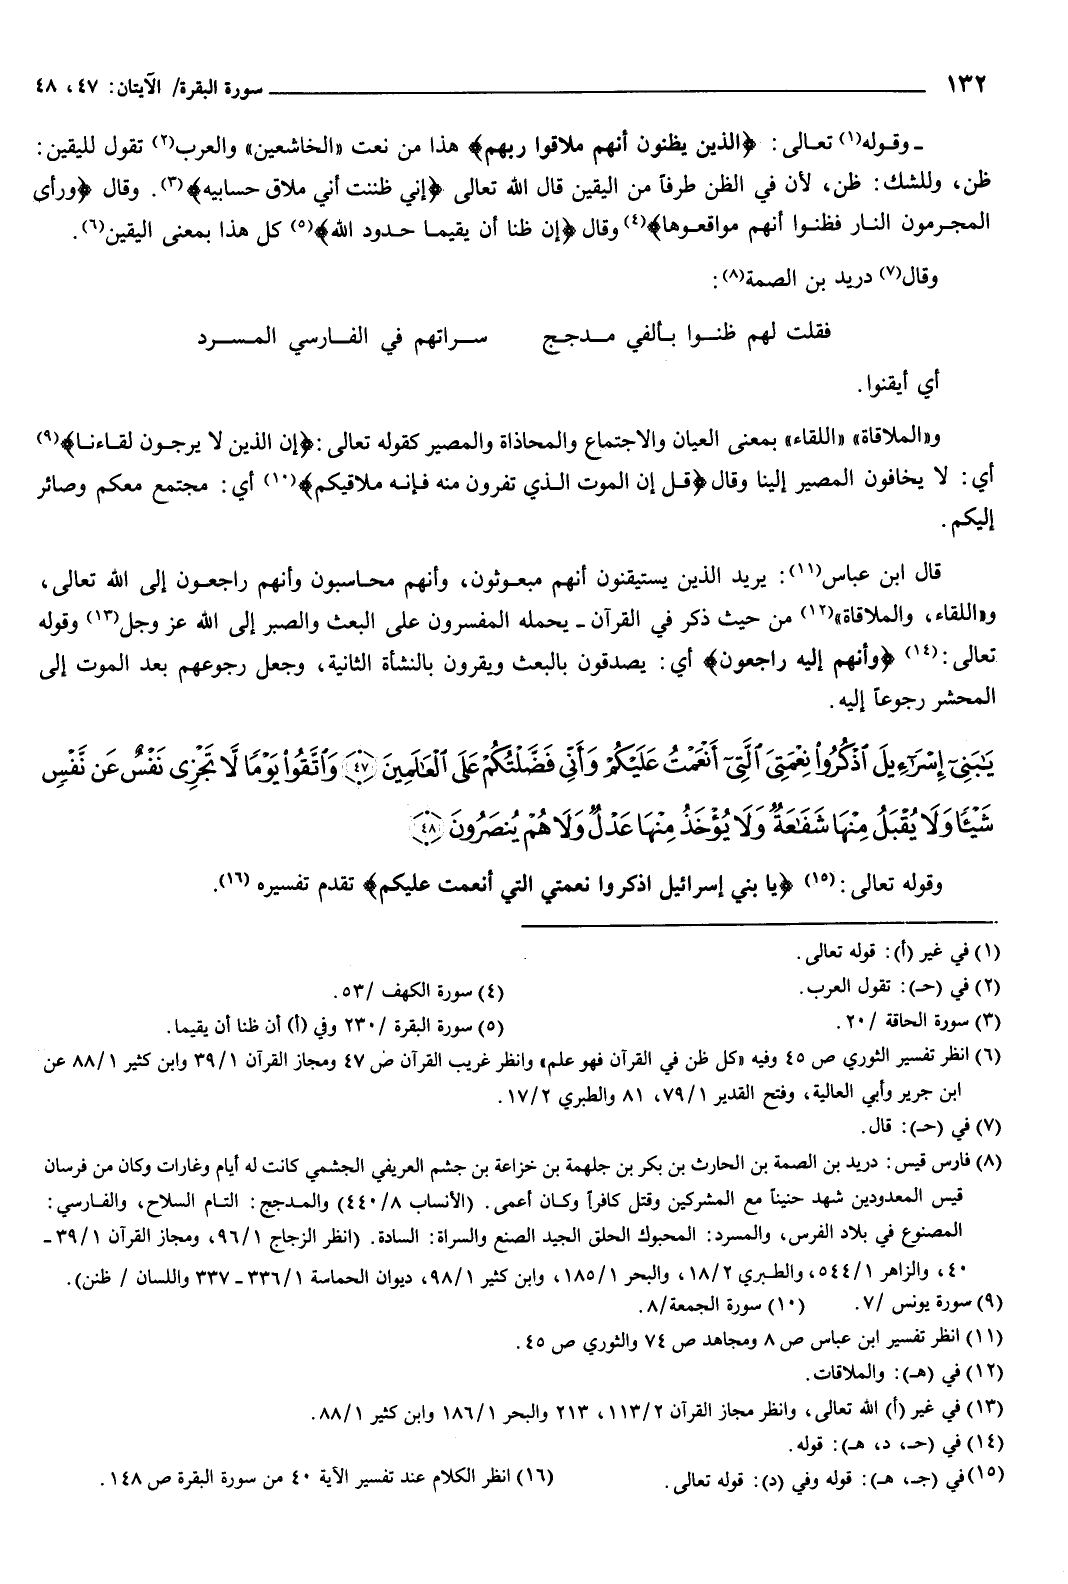 ١٣٢ سورة البقرة/ الآيتان: ٤٧، ٤٨
ـ وقوله(١) تعالى: ﴿الذين يظنون أنهم ملاقوا ربهم﴾ هذا من نعت «الخاشعين» والعرب(٢) تقول لليقين:
ظن، وللشك: ظن، لأن في الظن طرفاً من اليقين قال الله تعالى ﴿إني ظننت أني ملاق حسابيه﴾(٣). وقال ﴿ورأى
المجرمون النار فظنوا أنهم مواقعوها﴾(٤) وقال ﴿إن ظنا أن يقيما حدود الله﴾(٥) كل هذا بمعنى اليقين(٦).
وقال(٧) دريد بن الصمة(٨):
فقلت لهم ظنوا بألفي مدجج سراتهم في الفارسي المسرد
أي أيقنوا.
و«الملاقاة» «اللقاء» بمعنى العيان والاجتماع والمحاذاة والمصير كقوله تعالى: ﴿إن الذين لا يرجون لقاءنا﴾(٩)
أي: لا يخافون المصير إلينا وقال ﴿قل إن الموت الذي تفرون منه فإنه ملاقيكم﴾(١٠) أي: مجتمع معكم وصائر
إليكم.
قال ابن عباس(١١): يريد الذين يستيقنون أنهم مبعوثون، وأنهم محاسبون وأنهم راجعون إلى الله تعالى،
و«اللقاء، والملاقاة»(١٢) من حيث ذكر في القرآن ـ يحمله المفسرون على البعث والصبر إلى الله عز وجل(١٣) وقوله
تعالى:(١٤) ﴿وأنهم إليه راجعون﴾ أي: يصدقون بالبعث ويقرون بالنشأة الثانية، وجعل رجوعهم بعد الموت إلى
المحشر رجوعاً إليه.
يَٰبَنِىٓ إِسْرَٰٓءِيلَ ٱذْكُرُوا۟ نِعْمَتِىَ ٱلَّتِىٓ أَنْعَمْتُ عَلَيْكُمْ وَأَنِّى فَضَّلْتُكُمْ عَلَى ٱلْعَٰلَمِينَ ﴿٤٧﴾ وَٱتَّقُوا۟ يَوْمًا لَّا تَجْزِى نَفْسٌ عَن نَّفْسٍ
شَيْـًٔا وَلَا يُقْبَلُ مِنْهَا شَفَٰعَةٌ وَلَا يُؤْخَذُ مِنْهَا عَدْلٌ وَلَا هُمْ يُنصَرُونَ ﴿٤٨﴾
وقوله تعالى:(١٥) ﴿يا بني إسرائيل اذكروا نعمتي التي أنعمت عليكم﴾ تقدم تفسيره (١٦).
(١) في غير (أ): قوله تعالى.
(٢) في (حـ): تقول العرب. (٤) سورة الكهف /٥٣.
(٣) سورة الحاقة /٢٠. (٥) سورة البقرة /٢٣٠ وفي (أ) أن ظنا أن يقيما.
(٦) انظر تفسير الثوري ص ٤٥ وفيه «كل ظن في القرآن فهو علم» وانظر غريب القرآن ص ٤٧ ومجاز القرآن ٣٩/١ وابن كثير ٨٨/١ عن
ابن جرير وأبي العالية، وفتح القدير ٧٩/١، ٨١ والطبري ١٧/٢.
(٧) في (حـ): قال.
(٨) فارس قيس: دريد بن الصمة بن الحارث بن بكر بن جلهمة بن خزاعة بن جشم العريفي الجشمي كانت له أيام وغارات وكان من فرسان
قيس المعدودين شهد حنيناً مع المشركين وقتل كافراً وكان أعمى. (الأنساب ٤٤٠/٨) والمدجج: التام السلاح، والفارسي:
المصنوع في بلاد الفرس، والمسرد: المحبوك الحلق الجيد الصنع والسراة: السادة. (انظر الزجاج ٩٦/١، ومجاز القرآن ٣٩/١ ـ
٤٠، والزاهر ٥٤٤/١، والطبري ١٨/٢، والبحر ١٨٥/١، وابن كثير ٩٨/١، ديوان الحماسة ٣٣٦/١ ـ ٣٣٧ واللسان / ظنن).
(٩) سورة يونس /٧. (١٠) سورة الجمعة/٨.
(١١) انظر تفسير ابن عباس ص ٨ ومجاهد ص ٧٤ والثوري ص ٤٥.
(١٢) في (هـ): والملاقات.
(١٣) في غير (أ) الله تعالى، وانظر مجاز القرآن ١١٣/٢، ٢١٣ والبحر ١٨٦/١ وابن كثير ٨٨/١.
(١٤) في (حـ، د، هـ): قوله.
(١٥) في (جـ، هـ): قوله وفي (د): قوله تعالى. (١٦) انظر الكلام عند تفسير الآية ٤٠ من سورة البقرة ص ١٤٨.